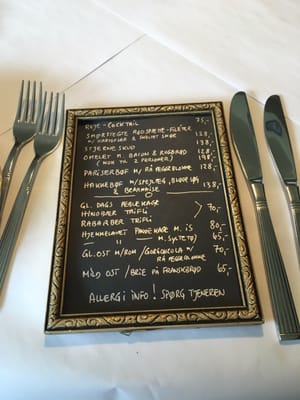 REJE-COCKTAIL 75,-
SMØRSTEGTE RØDSPÆTTE-FILETER 128,-
M/ KARTOFLER & SMELTET SMØR
STJERNESKUD 138,-
OMELET M. BACON & RUGBRØD 128,-
(MIN TIL 2 PERSONER) 198,-
PARISERBØF M/ RÅ ÆGGEBLOMME 128,-
HAKKEBØF M/ SPEJLÆG, BLØDE LØG
& BEARNAISE 138,-
GL. DAGS ÆBLEKAGE
HINDBÆR TRIFLI > 70,-
RABARBER TRIFLI
HJEMMELAVET PANDEKAGE M. IS 80,-
" " M. SYLTETØJ 65,-
GL. OST M/ROM / GORGONZOLA M/ 70,-
RÅ ÆGGEBLOMME
MILD OST / BRIE PÅ FRANSKBRØD 65,-
ALLERGI INFO! SPØRG TJENEREN